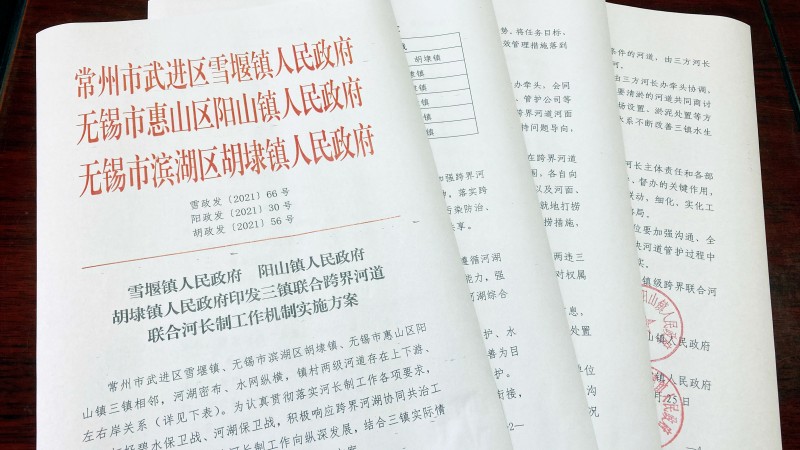 常州市武进区雪堰镇人民政府
无锡市惠山区阳山镇人民政府
无锡市滨湖区胡埭镇人民政府
雪政发〔2021〕66 号
阳政发〔2021〕30 号
胡政发〔2021〕56 号
雪堰镇人民政府 阳山镇人民政府
胡埭镇人民政府印发三镇联合跨界河道
联合河长制工作机制实施方案
常州市武进区雪堰镇、无锡市滨湖区胡埭镇、无锡市惠山区阳
山镇三镇相邻，河湖密布、水网纵横，镇村两级河道存在上下游、
左右岸关系（详见下表）。为认真贯彻落实河长制工作各项要求，
好碧水保卫战、河湖保卫战，积极响应跨界河湖协同共治工
河长制工作向纵深发展，结合三镇实际情
胡埭镇
埭镇
镇
镇
加强跨界河
，落实跨
污染防治、
享。
遵循河湖
能力，强
河湖综合
护、水
善为目
护。
衔接，
—2—
势。将任务目标、
效管理措施落到
办牵头，会同
、管护公司等
跨界河道河面
持问题导向，
在跨界河道
围，各自向
以及河面、
就地打捞
捞措施，
两违三
对权属
息，
处置
单位
沟
况
条件的河道，由三方河长
河。
由三方河长办牵头协调，
要清淤的河道共同商讨
场设置、淤泥处置等方
水系不断改善三镇水生
河长主体责任和各部
、督办的关键作用，
联动，细化、实化工
格局。
位要加强沟通、全
决河道管护过程中
实。
镇级跨界联合河
阳山镇人民政府
镇人民政府
镇人民政府
月 25 日
—4